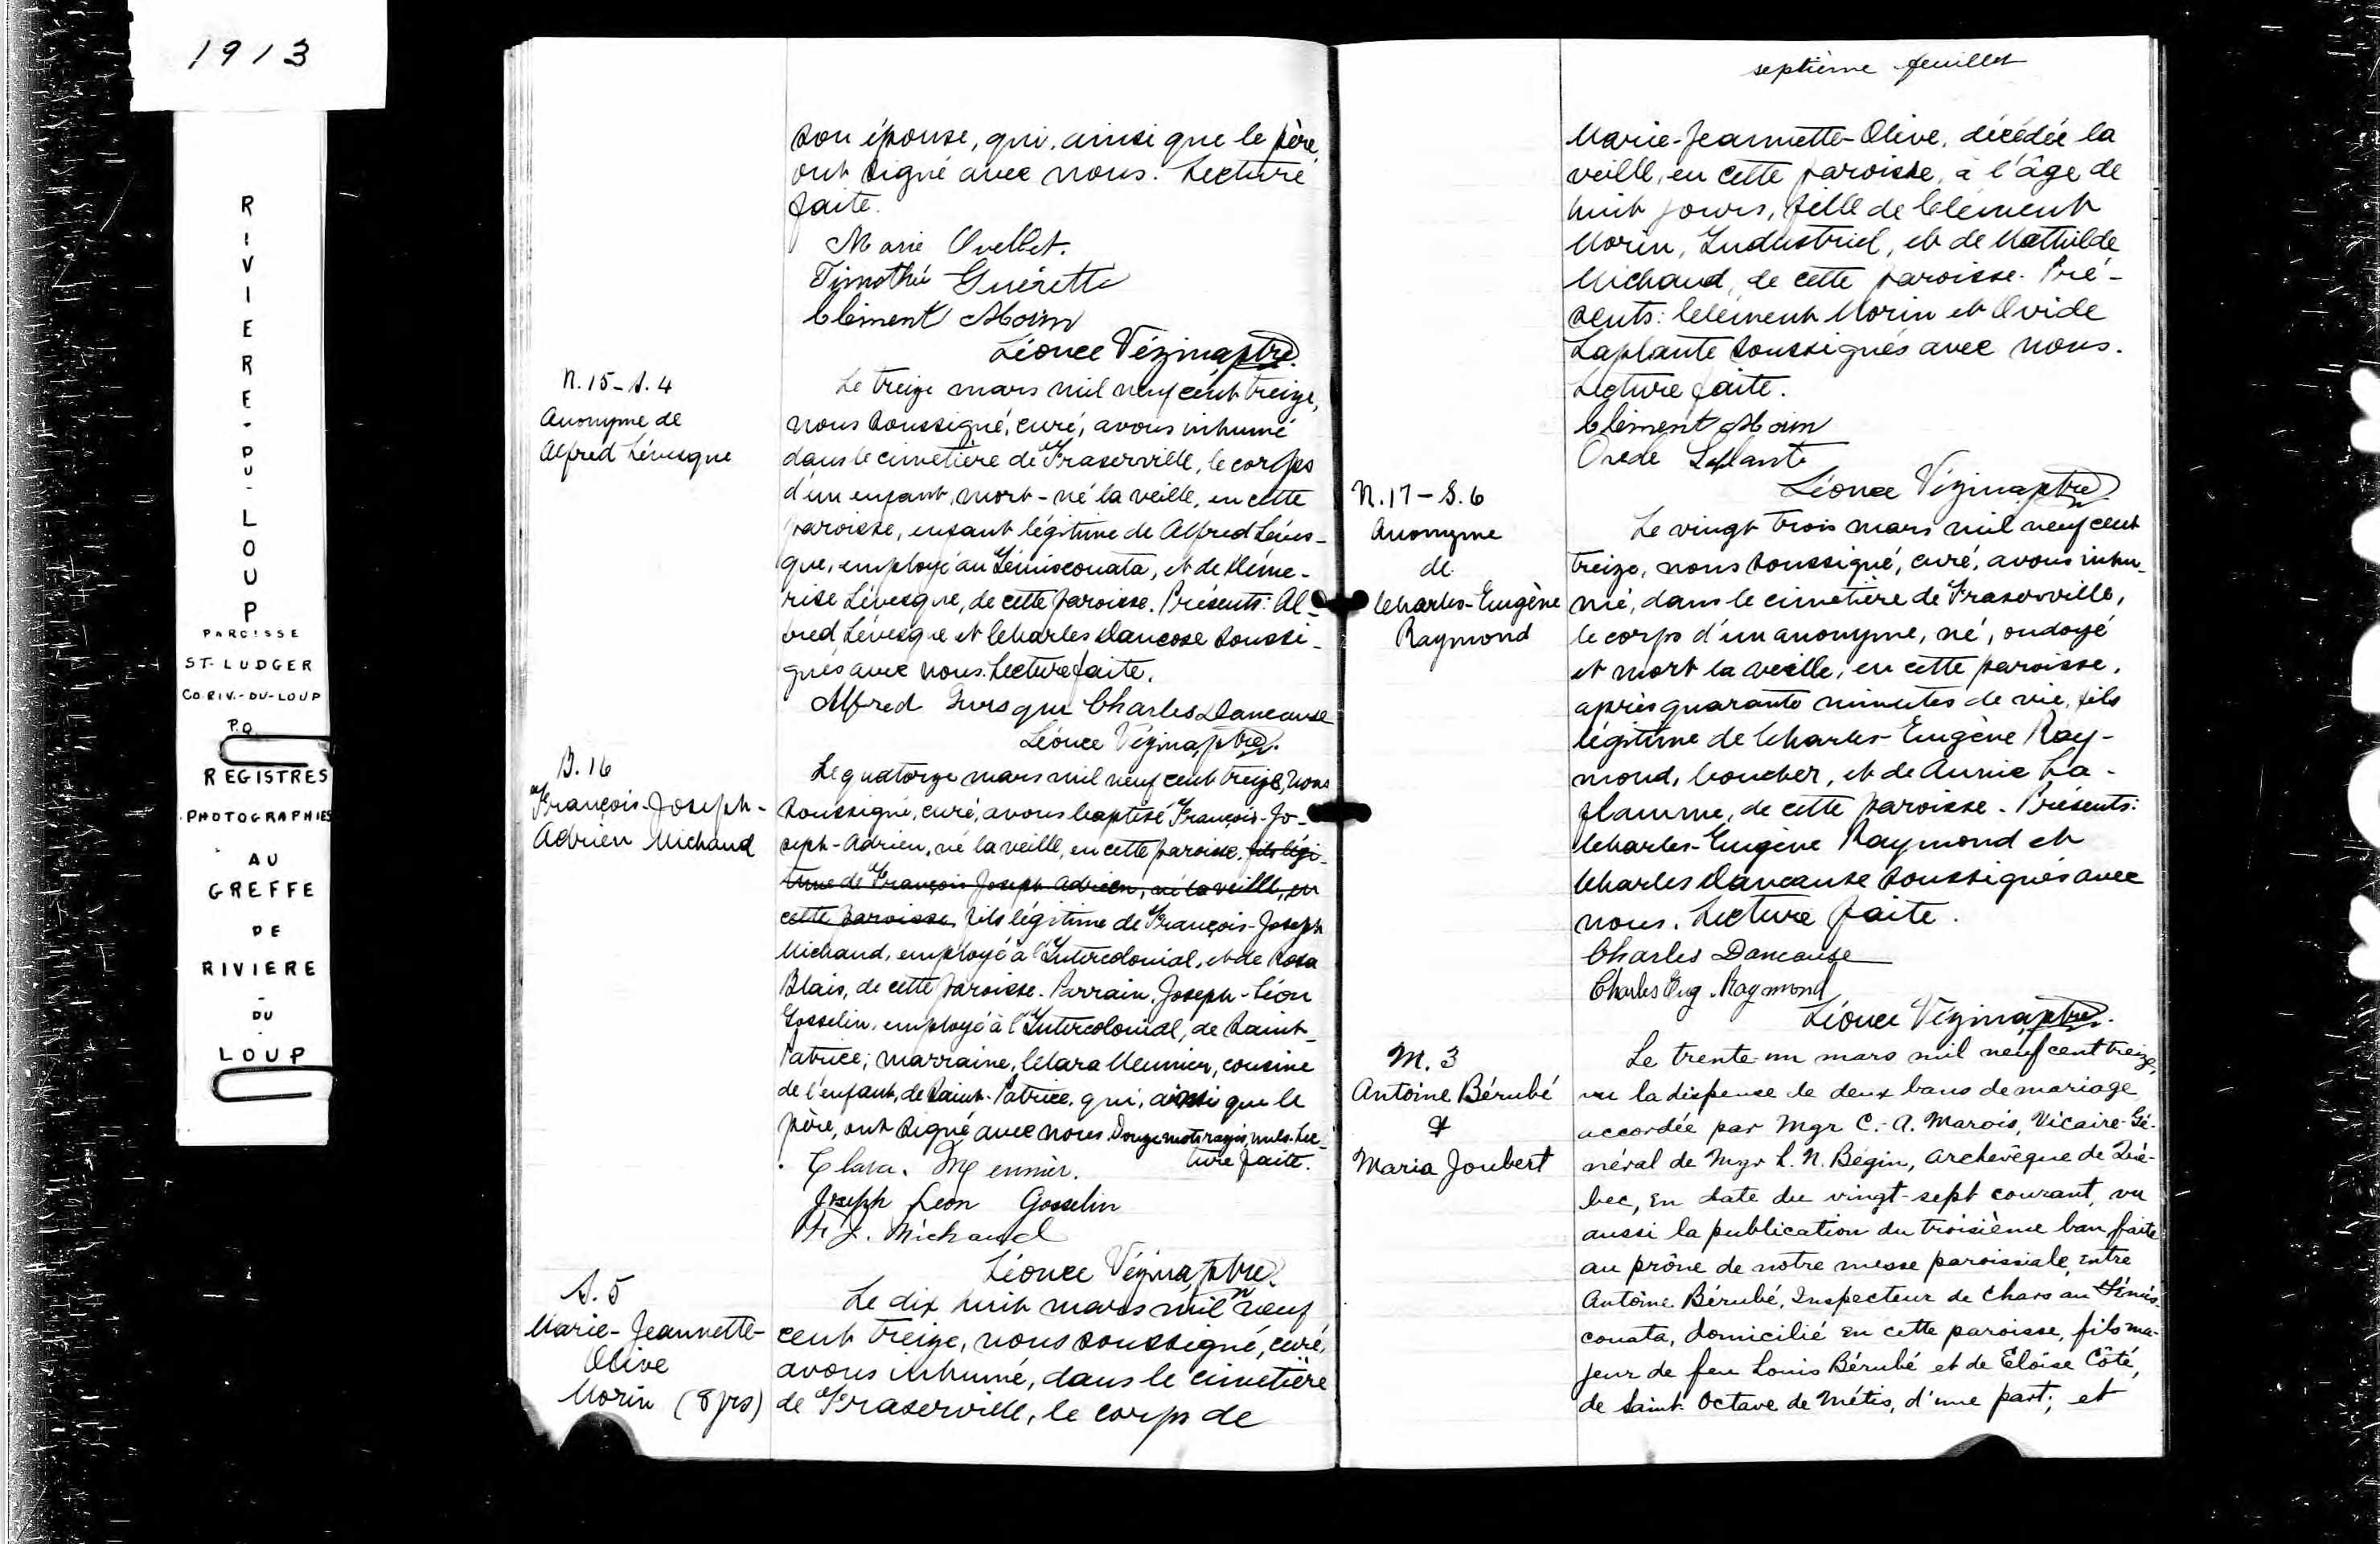 1913
RIVIERE-DU-LOUP
PAROISSE
ST-LUDGER
CO. RIV.-DU-LOUP
P.Q.
REGISTRES
PHOTOGRAPHIES
AU
GREFFE
DE
RIVIERE
-
DU
-
LOUP
son épouse, qui, ainsi que le père,
ont signé avec nous. Lecture
faite.
Marie Ouellet.
Timothé Guérette
Clément Morin
Léonce Vézina, ptre.
N. 15 - S. 4
Anonyme de
Alfred Lévesque
Le treize mars mil neuf cent treize,
nous soussigné, curé, avons inhumé
dans le cimetière de Fraserville, le corps
d'un enfant, mort-né la veille, en cette
paroisse, enfant légitime de Alfred Léves-
que, employé au Témisconata, et de Déme-
rise Lévesque, de cette paroisse. Présents: Al-
fred Lévesque et Charles Dancose soussi-
gnés avec nous. Lecture faite.
Alfred Lvesque Charles Dancause
Léonce Vézina, ptre.
B. 16
François-Joseph-
Adrien Michaud
Le quatorze mars mil neuf cent treize, nous
soussigné, curé, avons baptisé François-Jo-
seph-Adrien, né la veille, en cette paroisse, fils légi-
time de François Joseph Adrien, né la veille, en
cette paroisse, fils légitime de François-Joseph
Michaud, employé à l'Intercolonial, et de Rosa
Blais, de cette paroisse. Parrain, Joseph-Léon
Gosselin, employé à l'Intercolonial, de Saint-
Patrice; marraine, Clara Meunier, cousine
de l'enfant, de Saint-Patrice, qui, ainsi que le
père, ont signé avec nous. Douze mots rayés, nuls. Lec-
ture faite.
Clara. Meunier.
Joseph Leon Gosselin
F. J. Michaud
Léonce Vézina, ptre.
S. 5
Marie-Jeannette-
Olive
Morin (8 jrs)
Le dix huit mars mil neuf
cent treize, nous soussigné, curé,
avons inhumé, dans le cimetière
de Fraserville, le corps de
septième feuillet
Marie-Jeannette-Olive, décédée la
veille, en cette paroisse, à l'âge de
huit jours, fille de Clément
Morin, Industriel, et de Mathilde
Michaud, de cette paroisse. Pré-
sents: Clément Morin et Ovide
Laplante soussignés avec nous.
Lecture faite.
Clément Morin
Ovide Laplante
Léonce Vézina, ptre.
N. 17 - S. 6
Anonyme
de
Charles-Eugène
Raymond
Le vingt trois mars mil neuf cent
treize, nous soussigné, curé, avons inhu-
mé, dans le cimetière de Fraserville,
le corps d'un anonyme, né, ondoyé
et mort la veille, en cette paroisse,
après quarante minutes de vie, fils
légitime de Charles-Eugène Ray-
mond, boucher, et de Annie La-
flamme, de cette paroisse. Présents:
Charles-Eugène Raymond et
Charles Dancause soussignés avec
nous. Lecture faite.
Charles Dancause
Charles Eug. Raymond
Léonce Vézina, ptre.
M. 3
Antoine Bérubé
&
Maria Joubert
Le trente-un mars mil neuf cent treize,
vu la dispense de deux bans de mariage
accordée par Mgr C.-A. Marois, Vicaire-Gé-
néral de Mgr L. N. Bégin, archevêque de Qué-
bec, en date du vingt-sept courant, vu
aussi la publication du troisième ban faite
au prône de notre messe paroissiale, entre
Antoine Bérubé, Inspecteur de chars au Témis-
conata, domicilié en cette paroisse, fils ma-
jeur de feu Louis Bérubé et de Eloïse Côté,
de Saint-Octave de Métis, d'une part; et